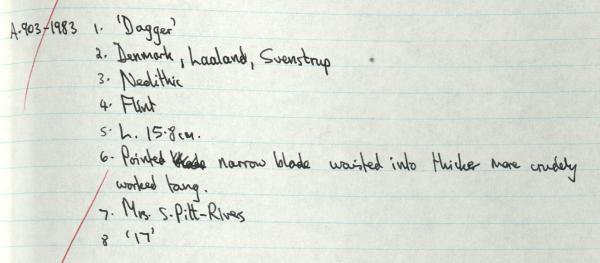 A.903-1983 1. 'Dagger'
2. Denmark, Laaland, Svenstrup
3. Neolithic
4. Flint
5. L. 15.8cm.
6. Pointed narrow blade waisted into thicker more crudely
worked tang.
7. Mrs. S. Pitt-Rivers
8 '17'